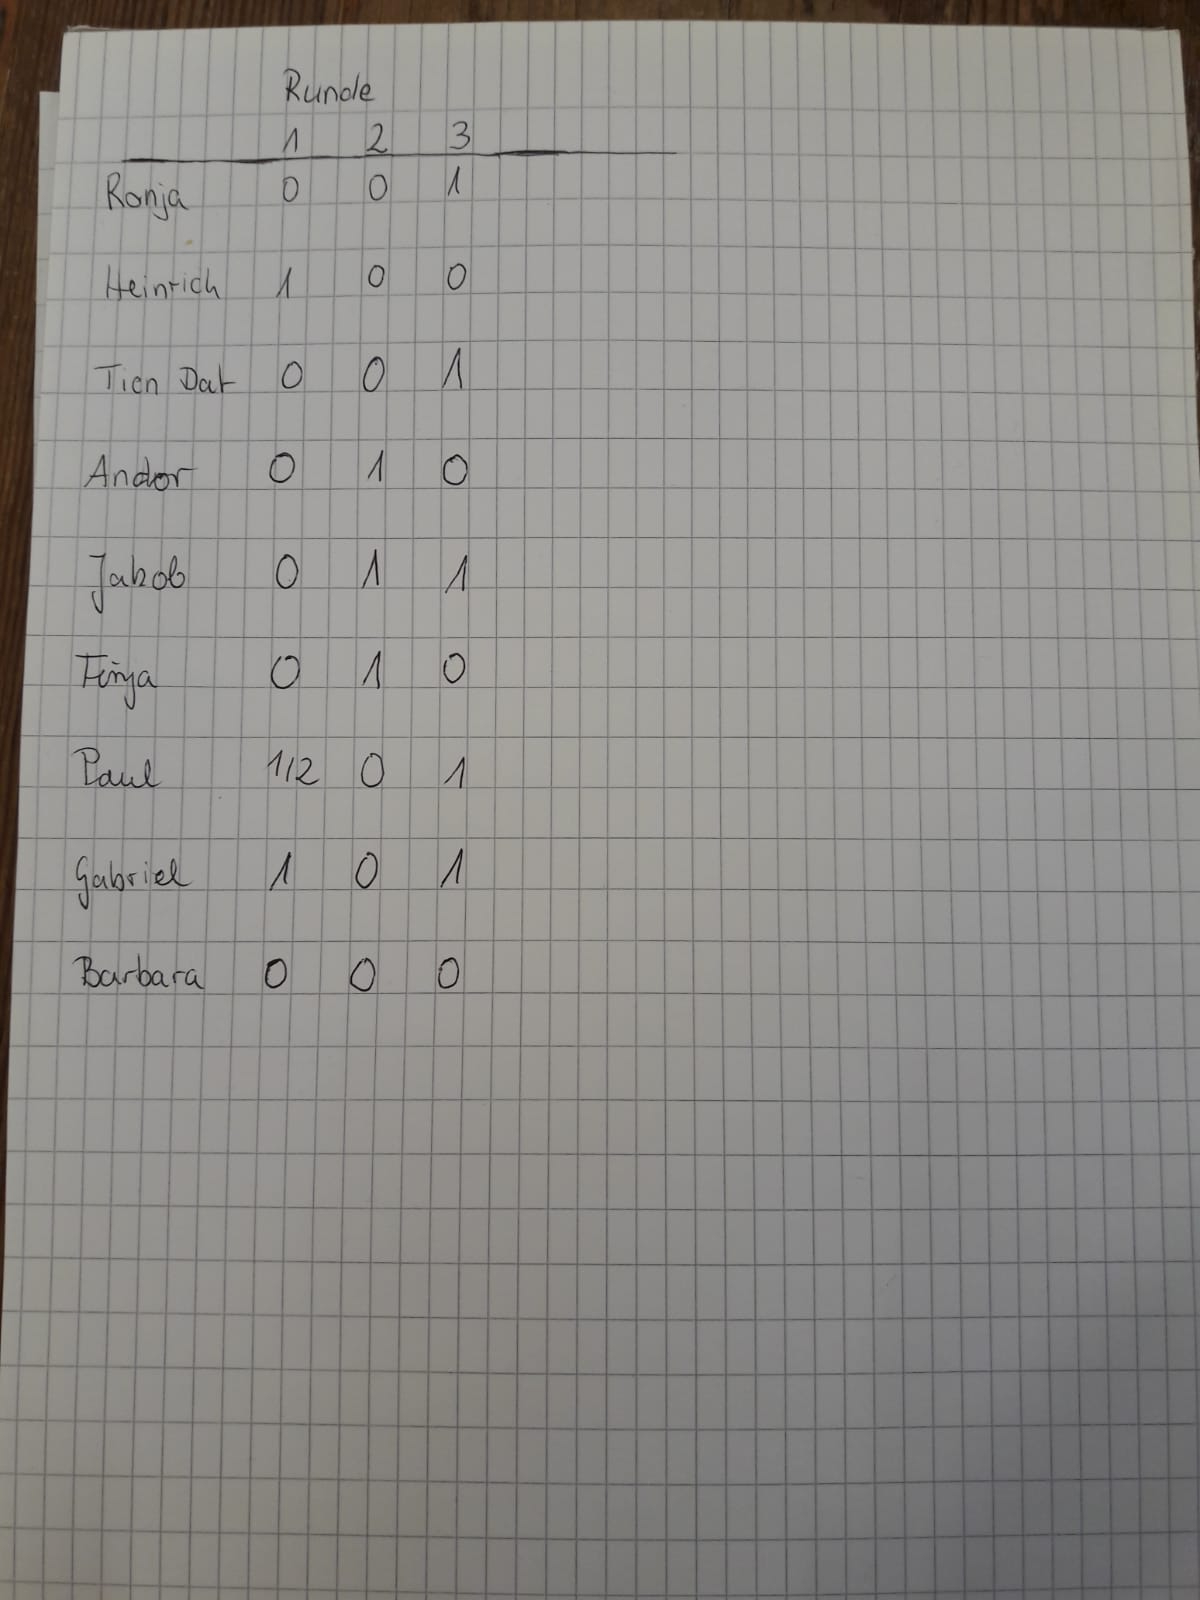 Runde
1 2 3
Ronja 0 0 1
Heinrich 1 0 0
Tien Dat 0 0 1
Andor 0 1 0
Jakob 0 1 1
Finja 0 1 0
Paul 1/2 0 1
Gabriel 1 0 1
Barbara 0 0 0